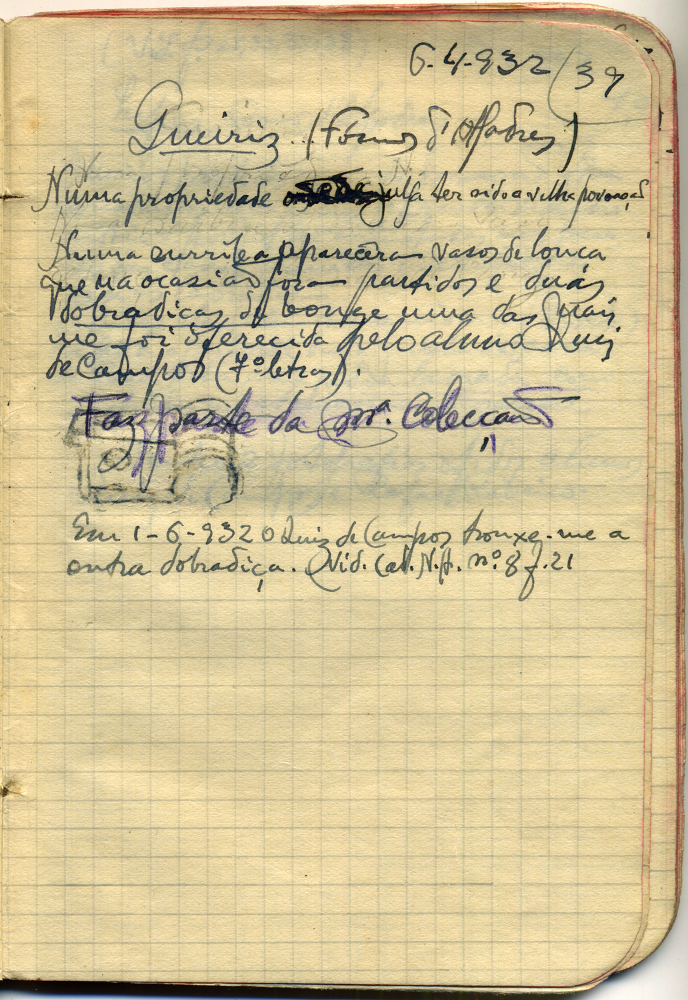 6-4-932 / 39
Queiriz (Fornos d'Algodres)
Numa propriedade julga ter sido a velha povoação
Numa apareceram vasos de louça
que na ocasião foram partidos e duas
dobradiças de bronze uma das quais
me foi oferecida pelo aluno Luiz
de Campos (7º letras).
Faz parte da mª. Colecção
Em 1-6-932 o Luiz de Campos trouxe-me a
outra dobradiça. Vid. Cad. N.A. nº 8 f. 21